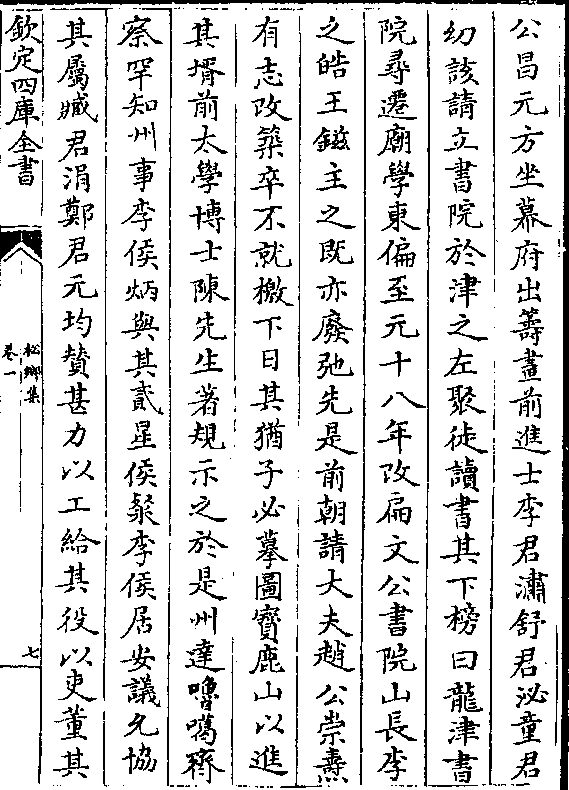 公昌元方坐幕府出籌畫前進士李君瀟舒君泌童君
幼該請立書院於津之左聚徒讀書其下榜曰龍津書
院尋遷廟學東偏至元十八年改扁文公書院山長李
之皓王鎡主之既亦廢弛先是前朝請大夫趙公崇燾
有志改築卒不就檄下日其猶子必摹圖寶鹿山以進
其壻前太學博士陳先生著規示之於是州達嚕噶齊
察罕知州事李侯炳與其貳星侯粲李侯居安議允協
其屬臧君涓鄭君元均贊甚力以工給其役以吏董其
欽定四庫全書
松鄉集
卷一
七